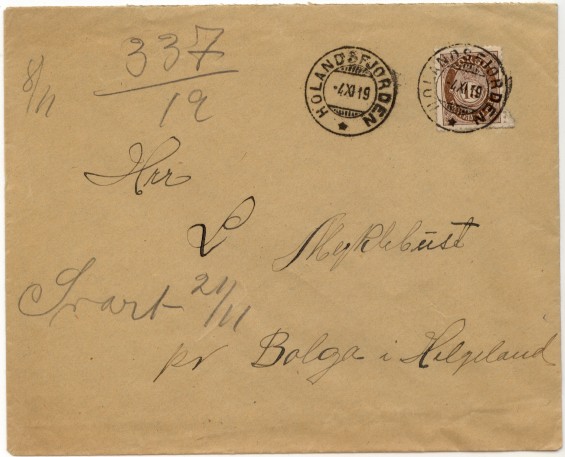 337
19
8/11
HOLANDSFJORDEN
-4.XI.19
HOLANDSFJORDEN
-4.XI.19
Hrr
L Myklebust
Svart 21/11
pr Bolga i Helgeland